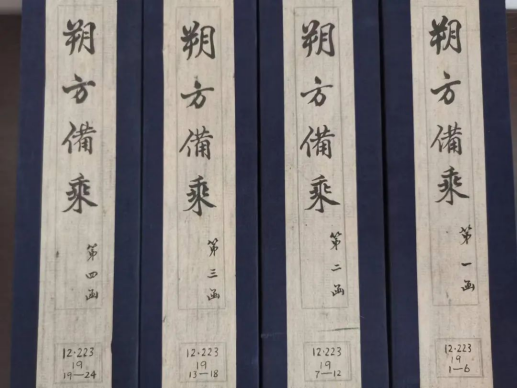 朔方備乘
第一函
12·223
19
1—6
朔方備乘
第二函
12·223
19
7—12
朔方備乘
第三函
12·223
19
13—18
朔方備乘
第四函
12·223
19
19—24